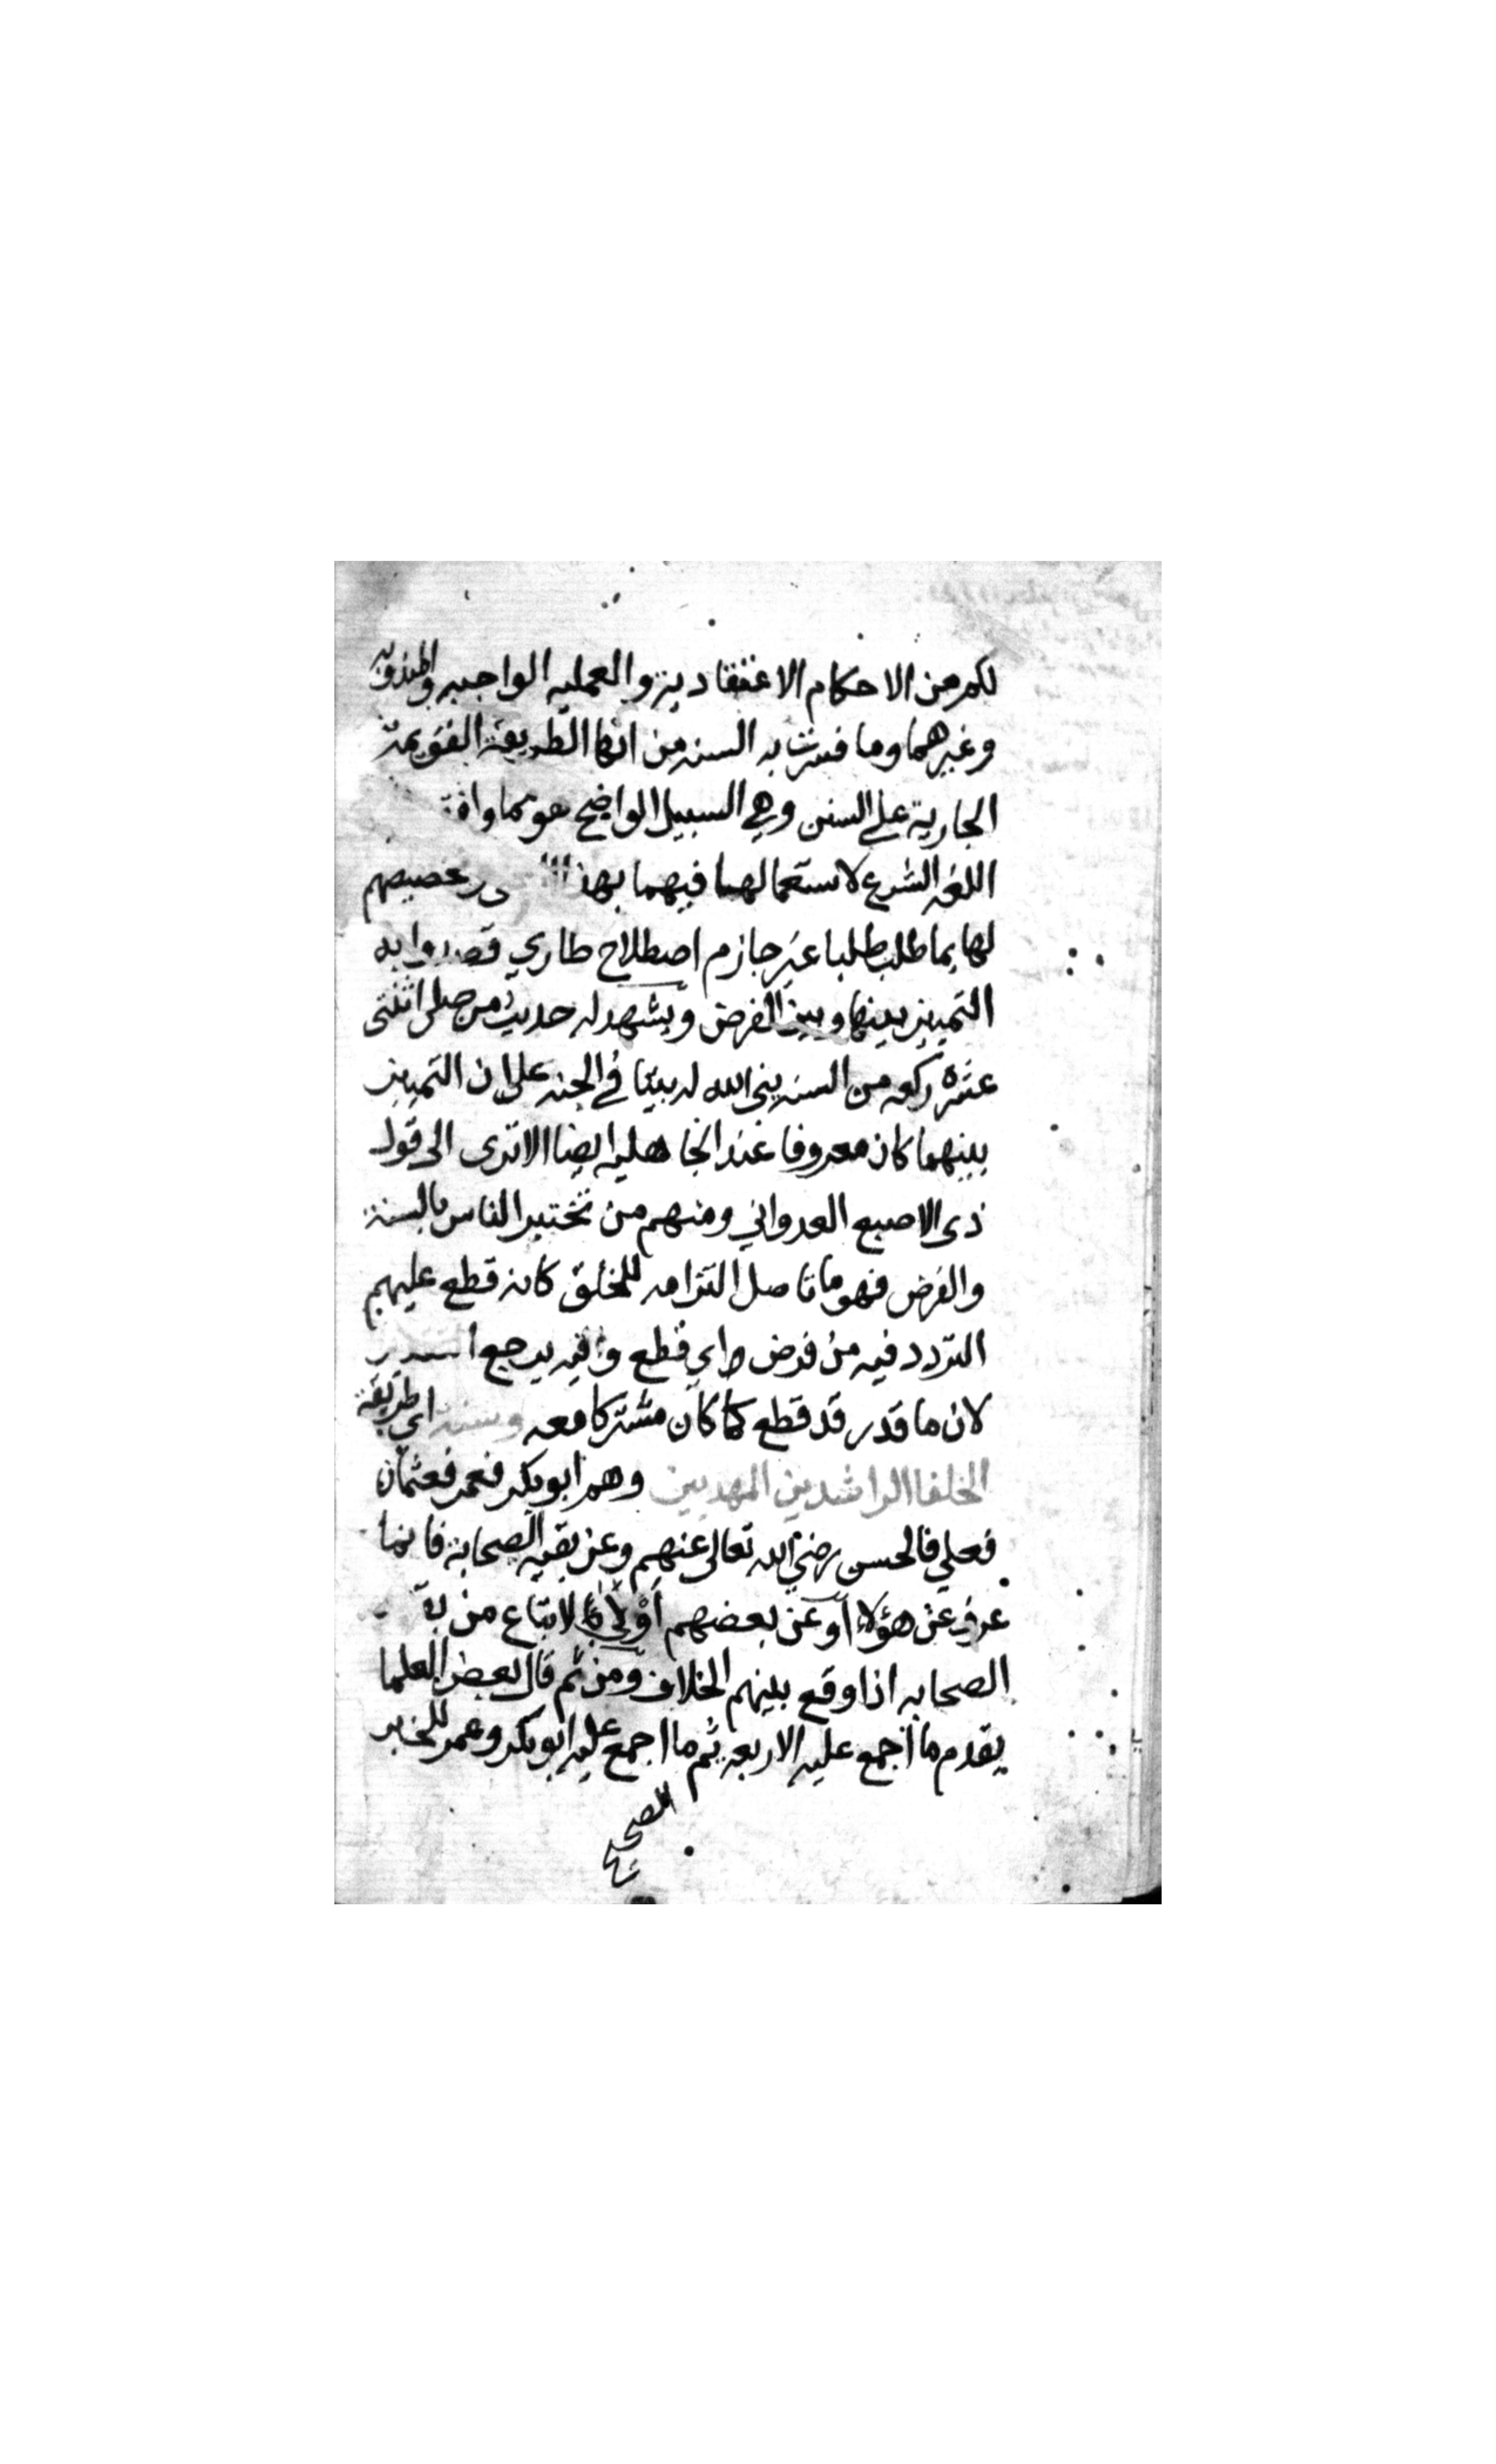 لكم من الاحكام الاعتقادية والعمليه الواجبه والمندوبه
وغيرهما وما فسرت به السنه من انها الطريقة القويمة
الجارية على السنن وهي السبيل الواضح هو مما
اللغه الشرع لاستعمالهما فيهما بهذا
لها بما طلب طلبا غير جازم اصطلاح طاري قصدوا به
التمييز بينها وبين الفرض ويشهد له حديث من صلى اثنتى
عشرة ركعه من السنه بنى الله له بيتا في الجنه على ان التمييز
بينهما كان معروفا عند الجاهليه ايضا الا ترى الى قول
ذى الاصبع العدواني ومنهم من تختير الناس بالسنة
والفرض فهو ما تاصل التزامه للخلق كانه قطع عليهم
التردد فيه من فرض اي قطع يرجع
لان ما قدر قد قطع كما كان مشتركا معه وسنة اي طريقة
الخلفا الراشدين المهديين وهم ابو بكر فعمر فعثمان
فعلي فالحسن رضي الله تعالى عنهم وعن بقيه الصحابة فانما
عرف عن هؤلاء أو عن بعضهم أولى بالاتباع من
الصحابه اذا وقع بينهم الخلاف ومن ثم قال بعض العلما
يقدم ما اجمع عليه الاربعه ثم ما اجمع عليه ابو بكر وعمر للخبر
الصحيح